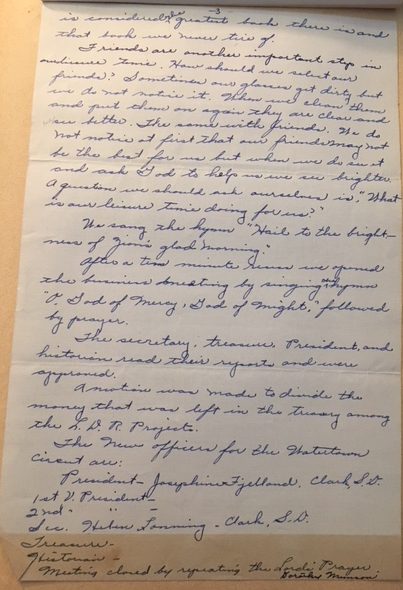 -3-
is considered the greatest book there is and
that book we never tire of.
Friends are another important step in
our leisure time. How should we select our
friends? Sometimes our glasses get dirty but
we do not notice it. When we clean them
and put them on again they are clear and
see better. The same with friends. We do
not notice at first that our friends may not
be the best for us but when we do see it
and ask God to help us we see brighter
A question we should ask ourselves is, "What
is our leisure time doing for us?"
We sang the hymn "Hail to the bright-
ness of Zion's glad morning."
After a ten minute recess we opened
the business meeting by singing the hymn
"O, God of Mercy, God of Might," followed
by prayer.
The secretary, treasure, President, and
historian read their reports and were
approved.
A motion was made to divide the
money that was left in the treasury among
the L. D. R. Projects.
The New officers for the Watertown
circuit are:
President - Josephine Fjelland, Clark, S.D.
1st V. President -
2nd " " -
Sec. Helen Lanning - Clark, S.D.
Treasure -
Historian -
Meeting closed by repeating the Lord's Prayer
Dorothy Munson